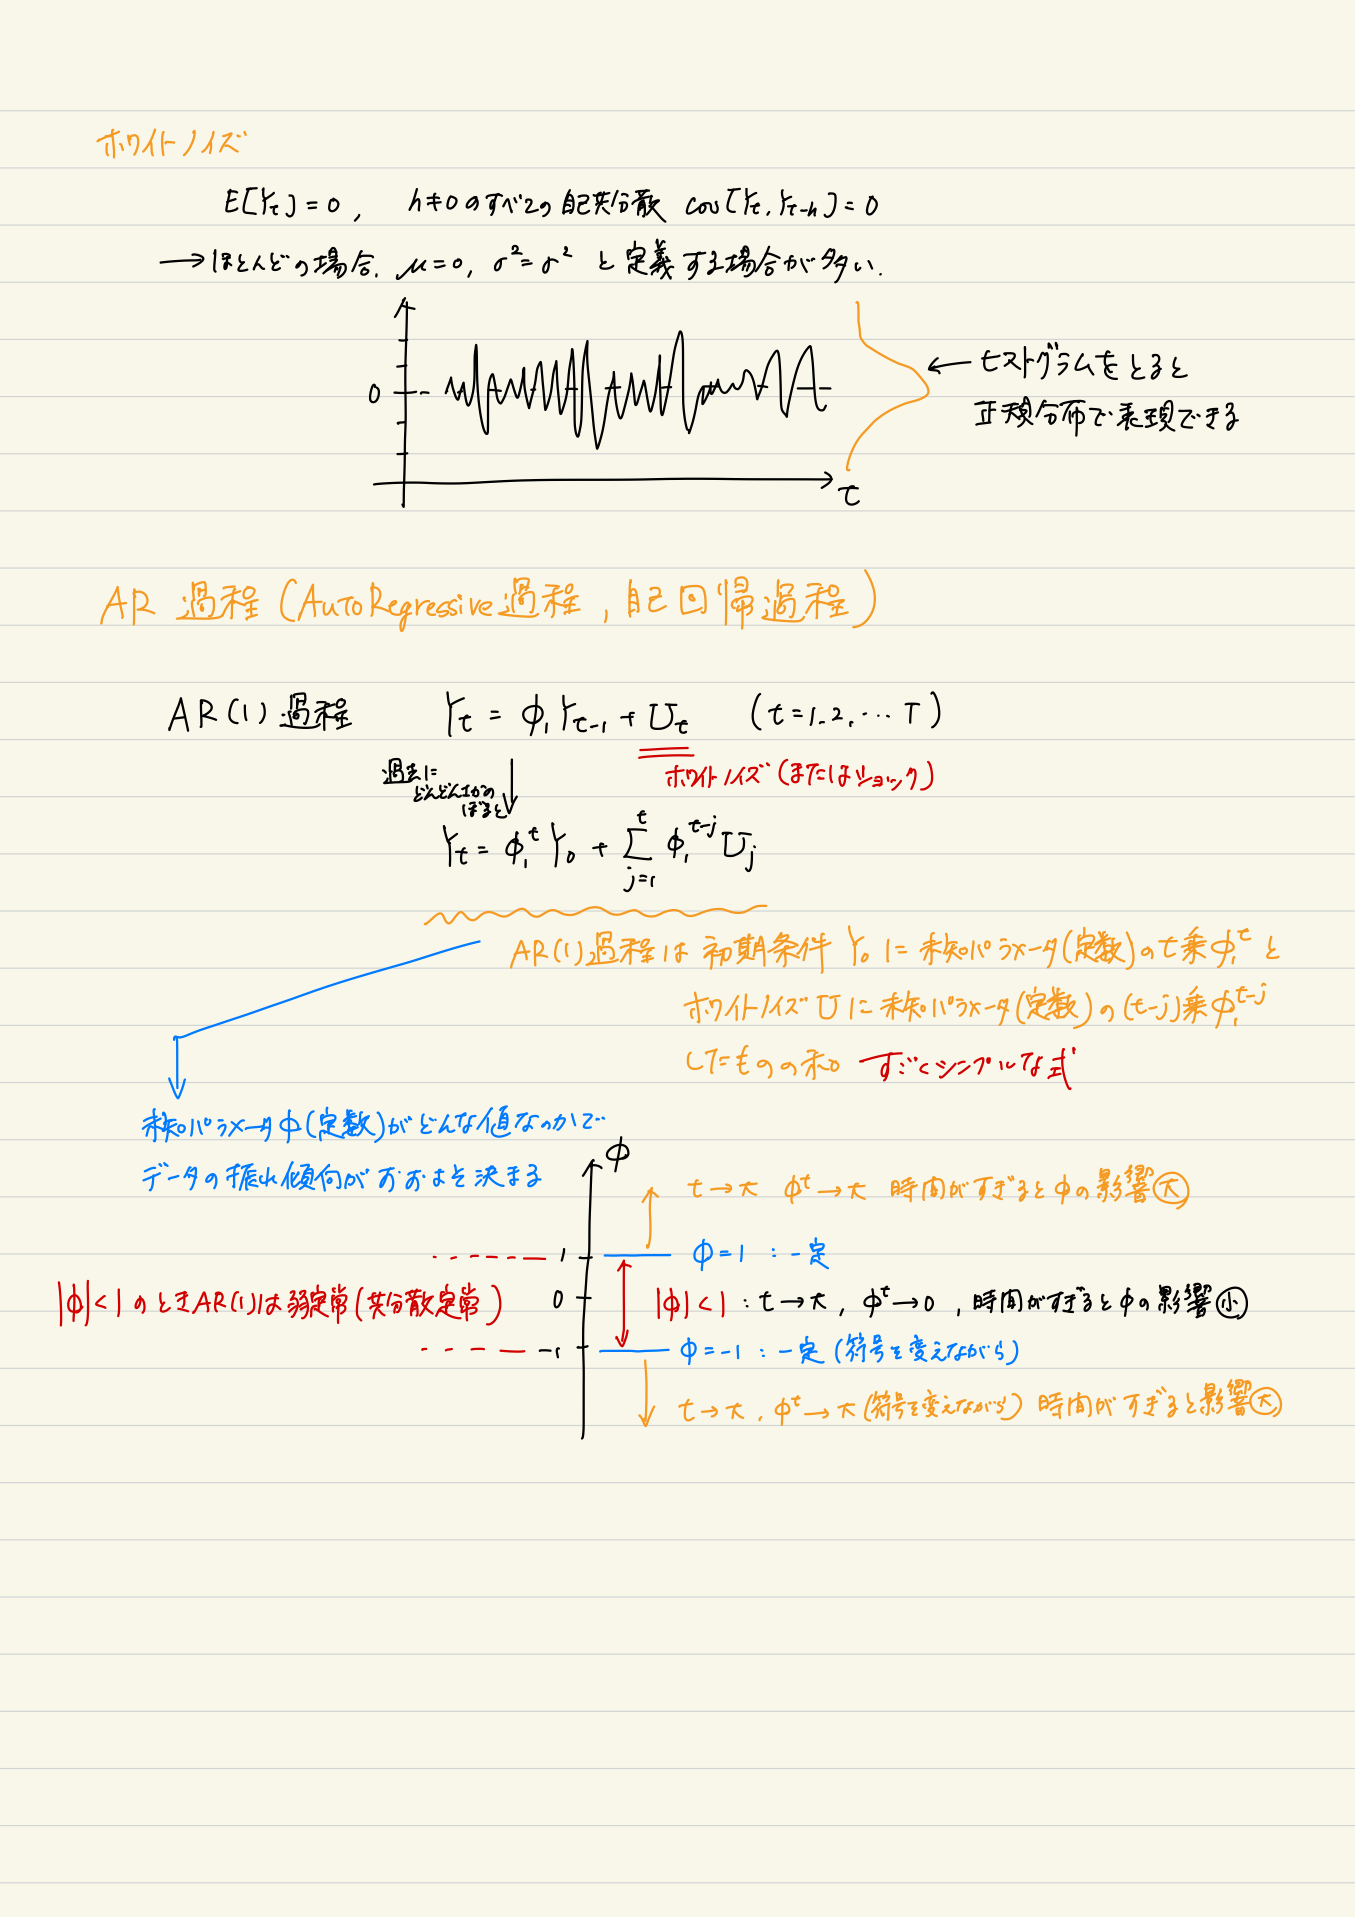 ホワイトノイズ
E[Yt] = 0, h≠0のすべての自己共分散 cov[Yt, Yt-h] = 0
→ほとんどの場合、μ=0, σ²=σ² と定義する場合が多い.
0
t
←ヒストグラムをとると
正規分布で表現できる
AR 過程 (AutoRegressive過程, 自己回帰過程)
AR(1)過程 Yt = φ₁Yt-1 + Ut (t=1, 2, … T)
ホワイトノイズ(またはショック)
過去に
どんどんさかの
ぼると
Yt = φ₁^t Y₀ + Σ_{j=1}^{t} φ₁^{t-j} Uj
AR(1)過程は 初期条件 Y₀ に 未知パラメータ(定数)のt乗φ₁^t と
ホワイトノイズ U に未知パラメータ(定数)の(t-j)乗φ₁^{t-j}
したものの和 すごくシンプルな式
未知パラメータφ(定数)がどんな値なのかで
データの振れ傾向がおおよそ決まる
φ
t→大 φ^t→大 時間がすぎるとφの影響㊤
1 φ=1 : 一定
|φ|<1のときAR(1)は弱定常(共分散定常)
0 |φ|<1 : t→大, φ^t→0, 時間がすぎるとφの影響小
-1 φ=-1 : 一定 (符号を変えながら)
t→大, φ^t→大(符号を変えながら) 時間がすぎると影響大